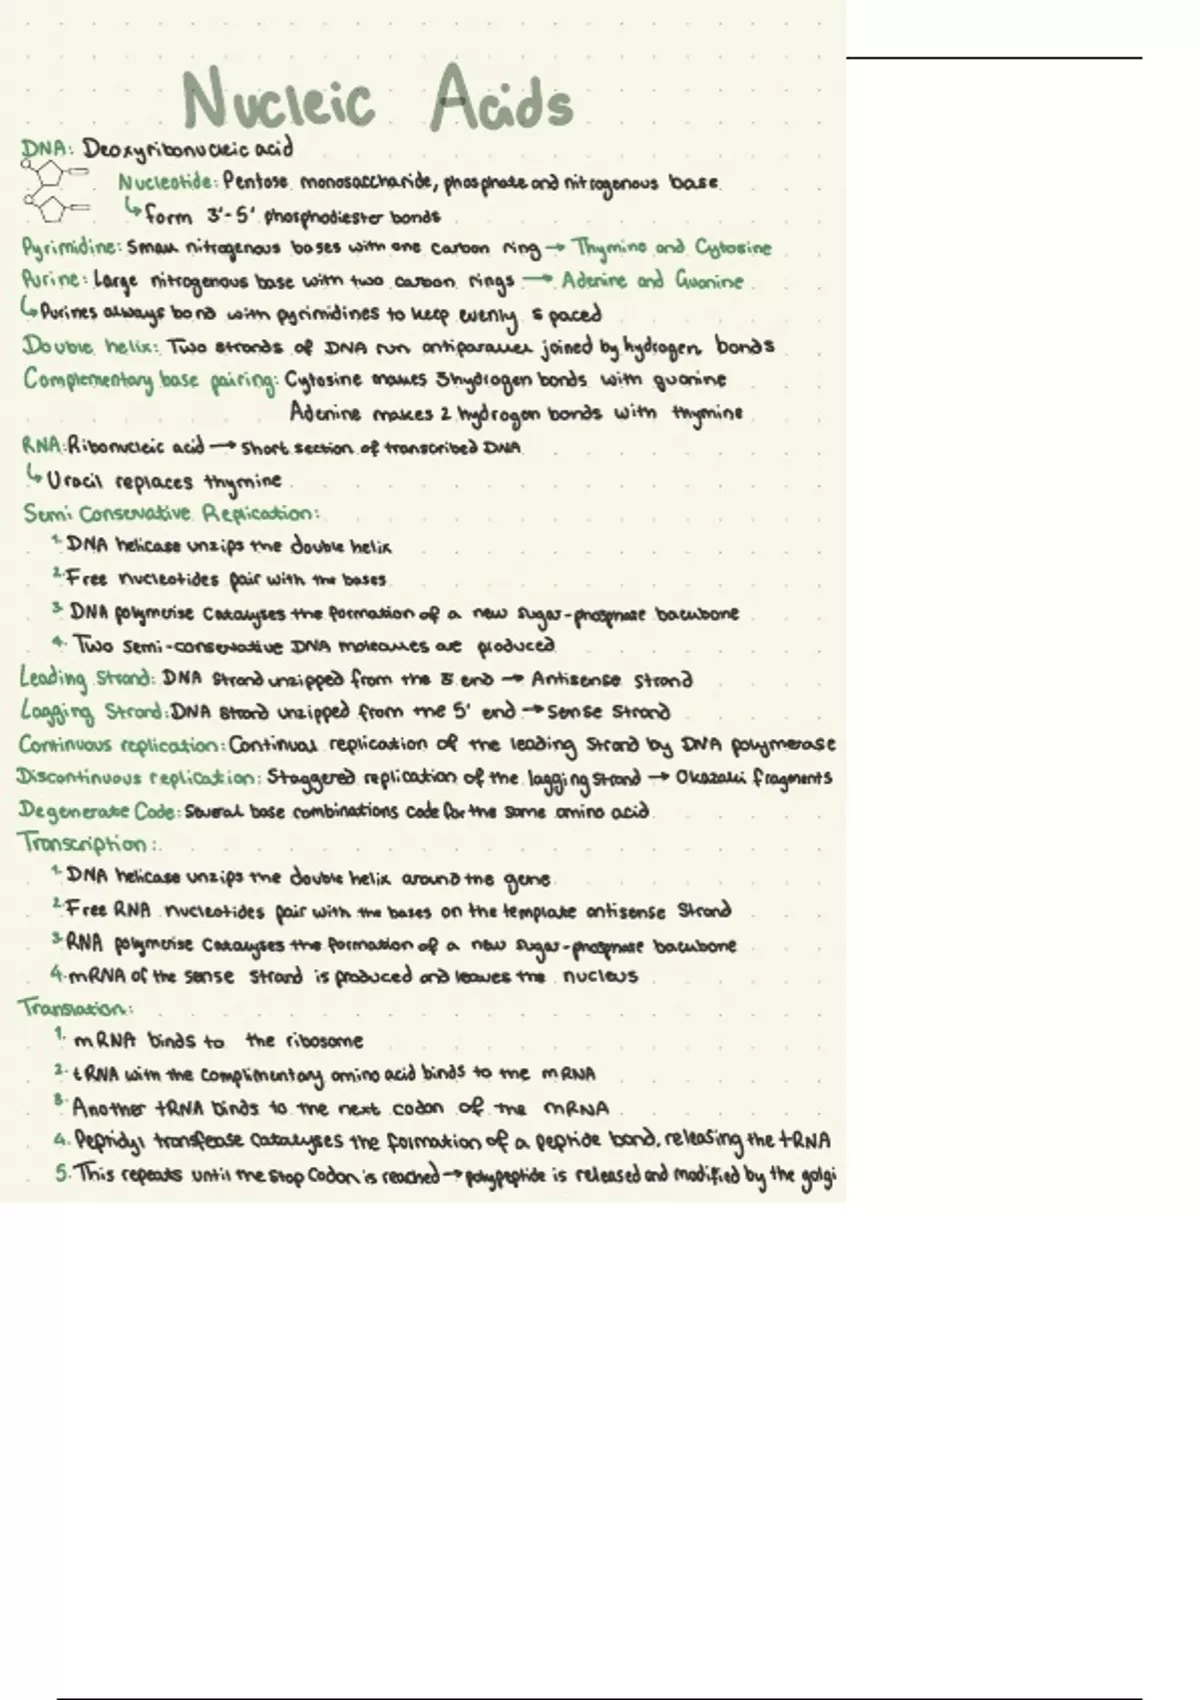 Nucleic Acids
DNA: Deoxyribonucleic acid
Nucleotide: Pentose monosaccharide, phosphate and nitrogenous base
↳ form 3'-5' phosphodiester bonds
Pyrimidine: Small nitrogenous bases with one carbon ring → Thymine and Cytosine
Purine: Large nitrogenous base with two carbon rings → Adenine and Guanine
↳ Purines always bond with pyrimidines to keep evenly spaced
Double helix: Two strands of DNA run antiparallel joined by hydrogen bonds
Complementary base pairing: Cytosine makes 3 hydrogen bonds with guanine
Adenine makes 2 hydrogen bonds with thymine
RNA: Ribonucleic acid → Short section of transcribed DNA
↳ Uracil replaces thymine
Semi Conservative Replication:
1. DNA helicase unzips the double helix
2. Free nucleotides pair with the bases
3. DNA polymerise catalyses the formation of a new sugar-phosphate backbone
4. Two semi-conservative DNA molecules are produced
Leading Strand: DNA strand unzipped from the end → Antisense strand
Lagging Strand: DNA strand unzipped from the 5' end → Sense Strand
Continuous replication: Continual replication of the leading strand by DNA polymerase
Discontinuous replication: Staggered replication of the lagging strand → Okazaki fragments
Degenerate Code: Several base combinations code for the same amino acid
Transcription:
1. DNA helicase unzips the double helix around the gene
2. Free RNA nucleotides pair with the bases on the template antisense Strand
3. RNA polymerise catalyses the formation of a new sugar-phosphate backbone
4. mRNA of the sense strand is produced and leaves the nucleus
Translation:
1. mRNA binds to the ribosome
2. tRNA with the complimentary amino acid binds to the mRNA
3. Another tRNA binds to the next codon of the mRNA
4. Peptidyl transfease catalyses the formation of a peptide bond, releasing the tRNA
5. This repeats until the stop codon is reached → polypeptide is released and modified by the golgi